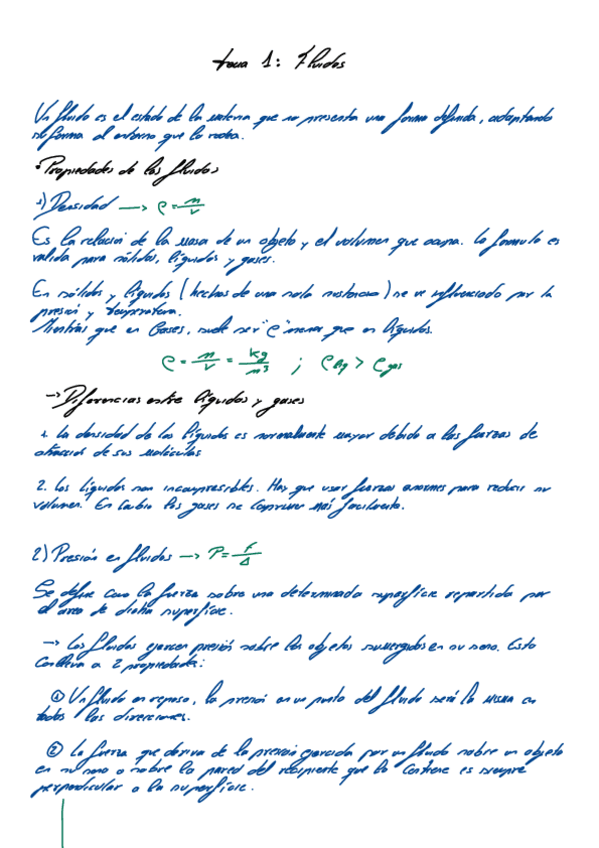 tema 1: Fluidos
Un fluido es el estado de la materia que no presenta una forma definida, adaptando
su forma al entorno que lo rodea.
• Propiedades de los fluidos
1) Densidad → ρ = m/V
Es la relación de la masa de un objeto y el volumen que ocupa. La formula es
valida para sólidos, líquidos y gases.
En sólidos y líquidos (hechos de una sola sustancia) se ve influenciado por la
presión y temperatura.
Mientras que en Gases, suele ser "ρ" menor que en líquidos.
ρ = m/V = kg/m³ ; ρ líq > ρ gas
→ Diferencias entre líquidos y gases
1. La densidad de los líquidos es normalmente mayor debido a las fuerzas de
atracción de sus moléculas
2. Los líquidos son incompresibles. Hay que usar fuerzas enormes para reducir su
volumen. En Cambio los gases se comprimen más facilmente.
2) Presión en fluidos → P = F/A
Se define como la fuerza sobre una determinada superficie repartida por
el área de dicha superficie.
→ Los fluidos ejercen presión sobre los objetos sumergidos en su seno. Esto
Conlleva a 2 propiedades:
① Un fluido en reposo, la presión en un punto del fluido será la misma en
todas las direcciones.
② La fuerza que deriva de la presión ejercida por un fluido sobre un objeto
en su seno o sobre la pared del recipiente que lo contiene es siempre
perpendicular a la superficie.